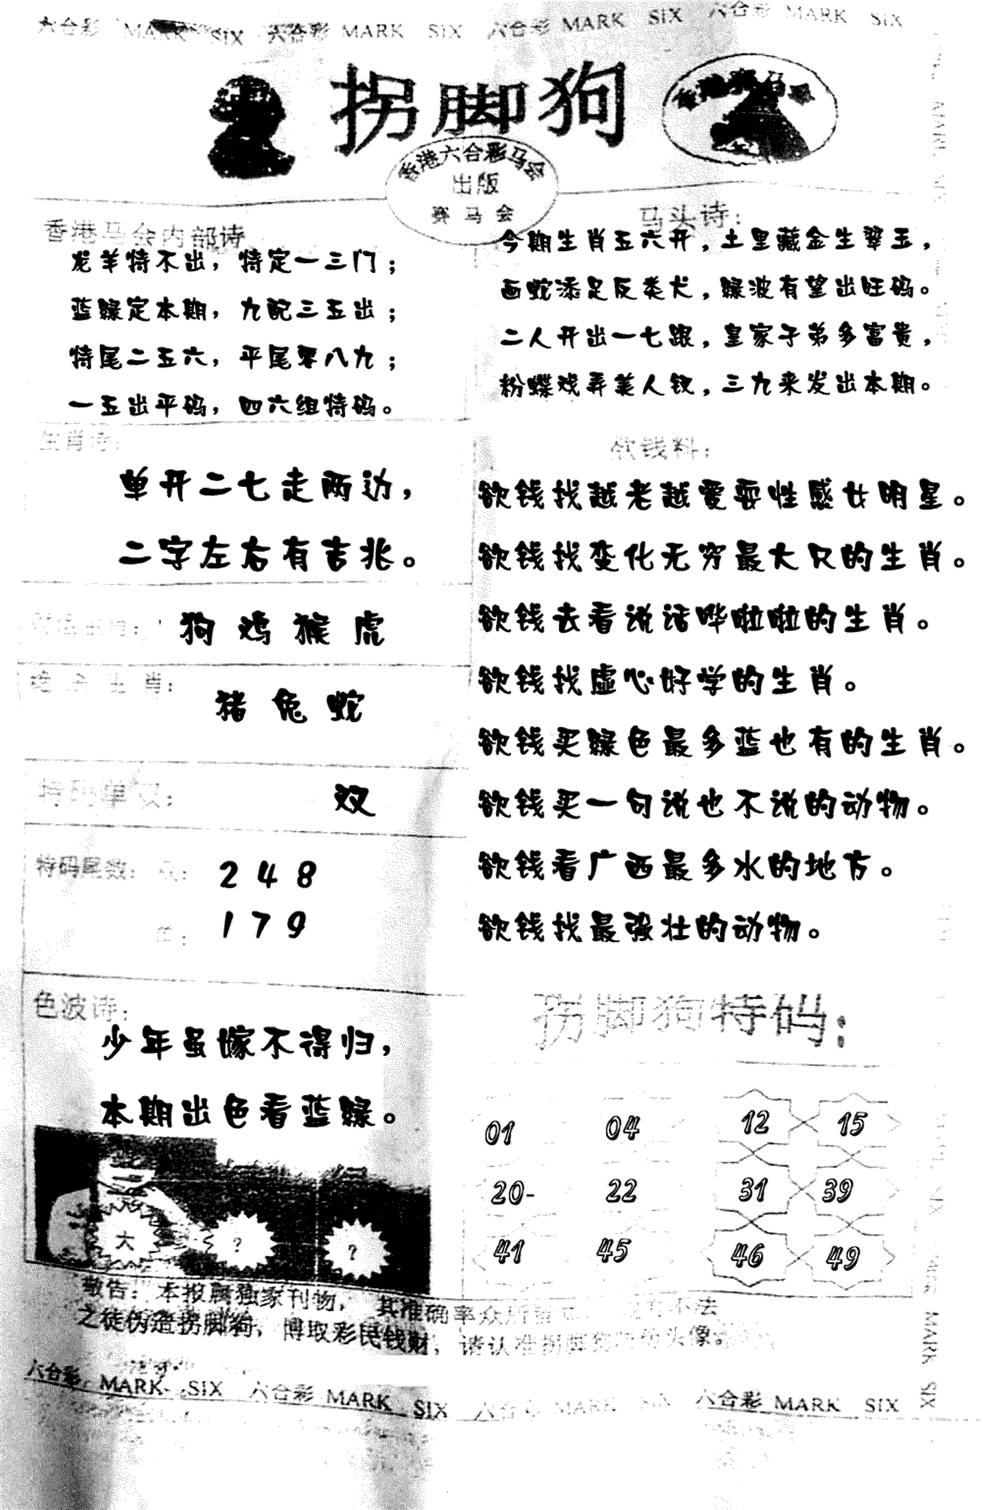 六合彩 MARK SIX 六合彩 MARK SIX 六合彩 MARK SIX 六合彩 MARK SIX
拐脚狗
香港赛马会
香港六合彩马会
出版
赛马会
香港马会内部诗
龙羊特不出，特定一三门；
蓝绿定本期，九配三五出；
特尾二五六，平尾零八九；
一五出平码，四六组特码。
马头诗：
今期生肖五六开，土里藏金生翠玉，
画蛇添足反类犬，绿波有望出旺码。
二人开出一七跟，皇家子弟多富贵，
粉蝶戏弄美人钗，三九来发出本期。
生肖诗：
单开二七走两边，
二字左右有吉兆。
狗鸡猴虎
绝杀生肖：
猪兔蛇
特码单双：
双
特码尾数：双：
2 4 8
单：
1 7 9
色波诗：
少年虽嫁不得归，
本期出色看蓝绿。
大
?
?
欲钱料：
欲钱找越老越爱耍性感女明星。
欲钱找变化无穷最大只的生肖。
欲钱去看说话哗啦啦的生肖。
欲钱找虚心好学的生肖。
欲钱买绿色最多蓝也有的生肖。
欲钱买一句说也不说的动物。
欲钱看广西最多水的地方。
欲钱找最强壮的动物。
拐脚狗特码：
01 04 12 15
20- 22 31 39
41 45 46 49
敬告：本报属独家刊物，其准确率众所 不法
之徒伪造拐脚狗，博取彩民钱财，请认准拐脚狗 头像
六合彩 MARK SIX 六合彩 MARK SIX 六合 MARK SIX 六合彩 MARK SIX
MARK SIX